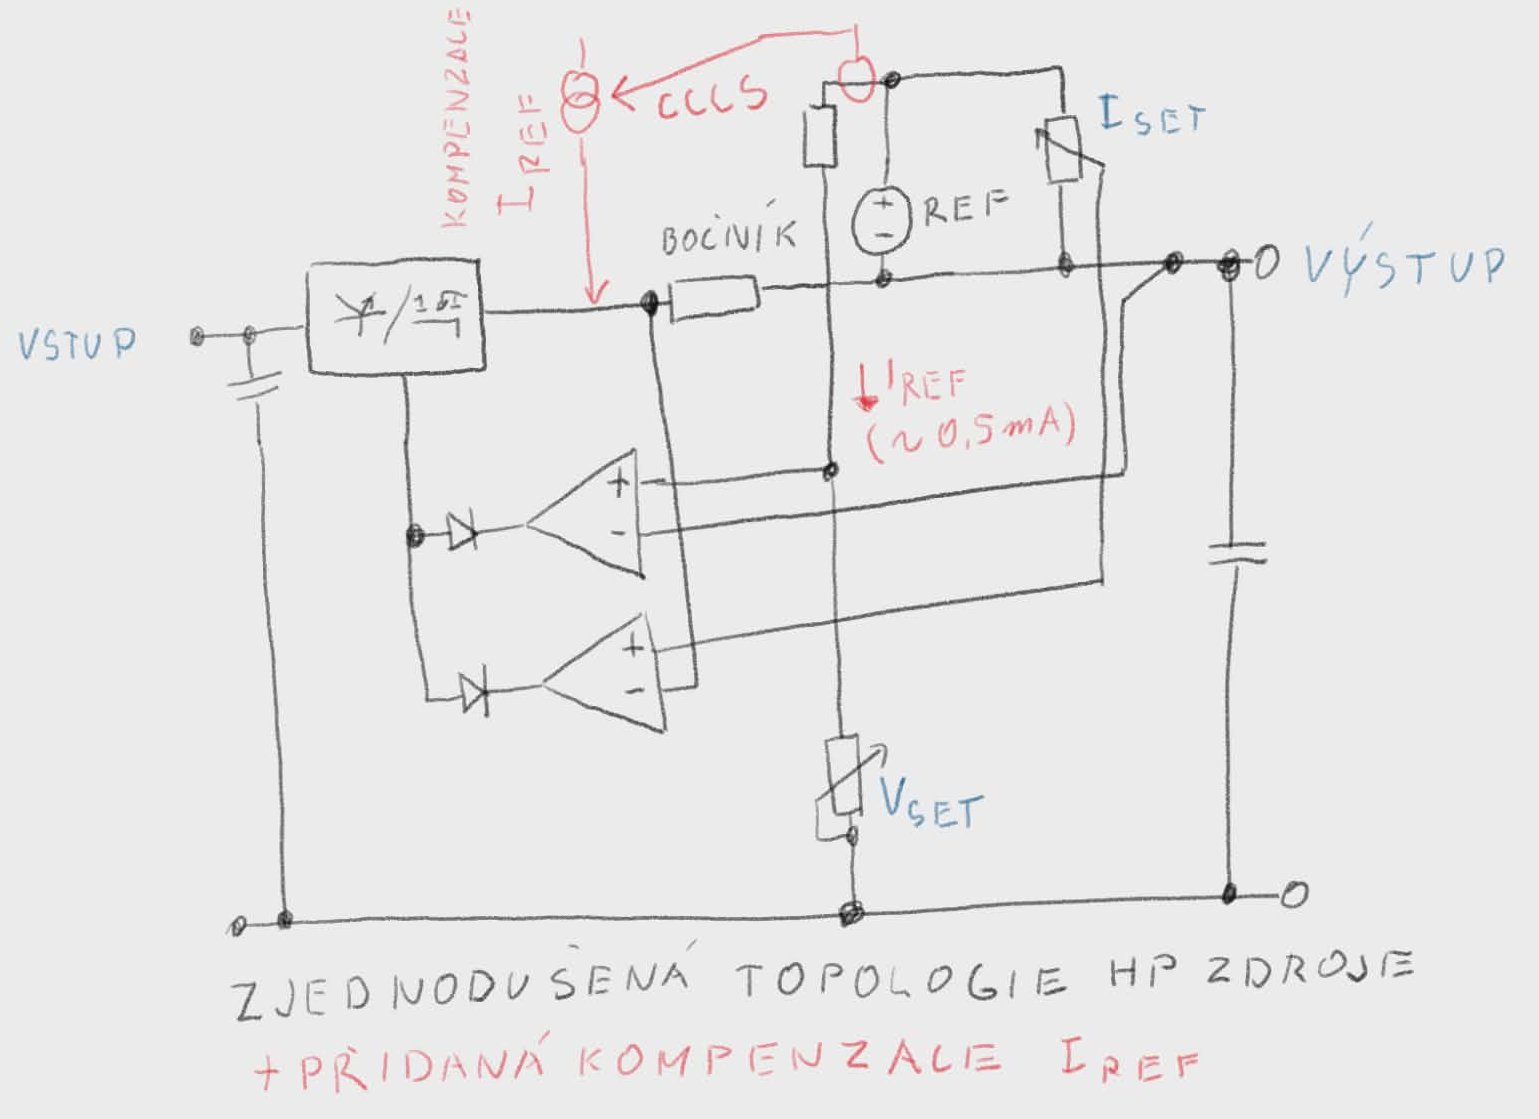 KOMPENZACE
IREF
CCCS
ISET
REF
BOČNÍK
VÝSTUP
VSTUP
IREF
(~0,5mA)
+
-
+
-
+
-
VSET
ZJEDNODUŠENÁ TOPOLOGIE HP ZDROJE
+ PŘIDANÁ KOMPENZACE IREF